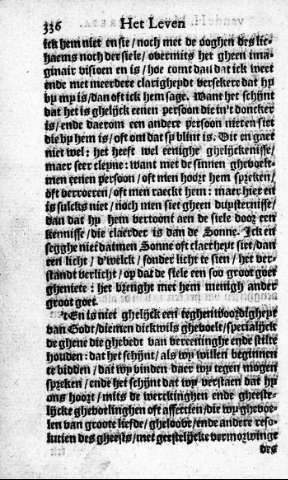 336 Het Leven
ick hem niet en sie / noch met de ooghen des lic-
haems noch der siele / overmits het gheen ima-
ginair visioen en is / hoe comt dan dat ick weet
ende met meerdere claerigheydt versekere dat hy
by my is / dan oft ick hem sage. Want het schijnt
dat het is ghelijck eenen persoon die in't doncker
is / ende daerom een andere persoon niet en siet
die by hem is / oft om dat sy blint is. Dit en gaet
niet wel: het heeft wel eenighe ghelijckenisse /
maer seer cleyne: want met de sinnen ghevoelt-
men eenen persoon / oft men hoort hem spreken /
oft verroeren / oft men raeckt hem: maer hier en
is sulcks niet / noch men siet gheen duysternisse /
dan dat hy hem vertoont aen de siele door een
kennisse / die claerder is dan de Sonne. Ick en
segghe niet datmen Sonne oft claerheyt siet / dan
een licht / d'welck / sonder licht te sien / het ver-
standt verlicht / op dat de siele een soo groot goet
gheniete: het brenght met hem menigh ander
groot goet.
't En is niet ghelijck een teghenwoordigheyt
van Godt / diemen dickwils ghevoelt / specialijck
de ghene die ghebedt van vereeninghe ende stilte
houden: dat het schijnt / als wy willen beginnen
te bidden / dat wy vinden daer wy tegen mogen
spreken / ende het schijnt dat wy verstaen dat hy
ons hoort / mits de werckinghen ende gheeste-
lijcke ghevoelinghen oft affectien / die wy ghevoe-
len van groote liefde / gheloove / ende andere reso-
lutien des gheests / met geestelijcke vermorwinge
des